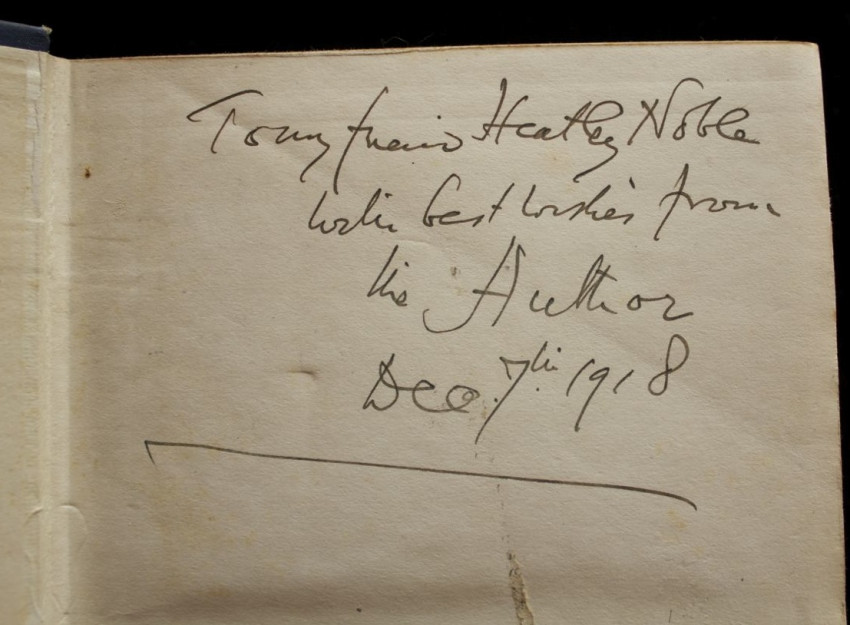 To my friend Heatley Noble
with best wishes from
the Author
Dec. 7th 1918